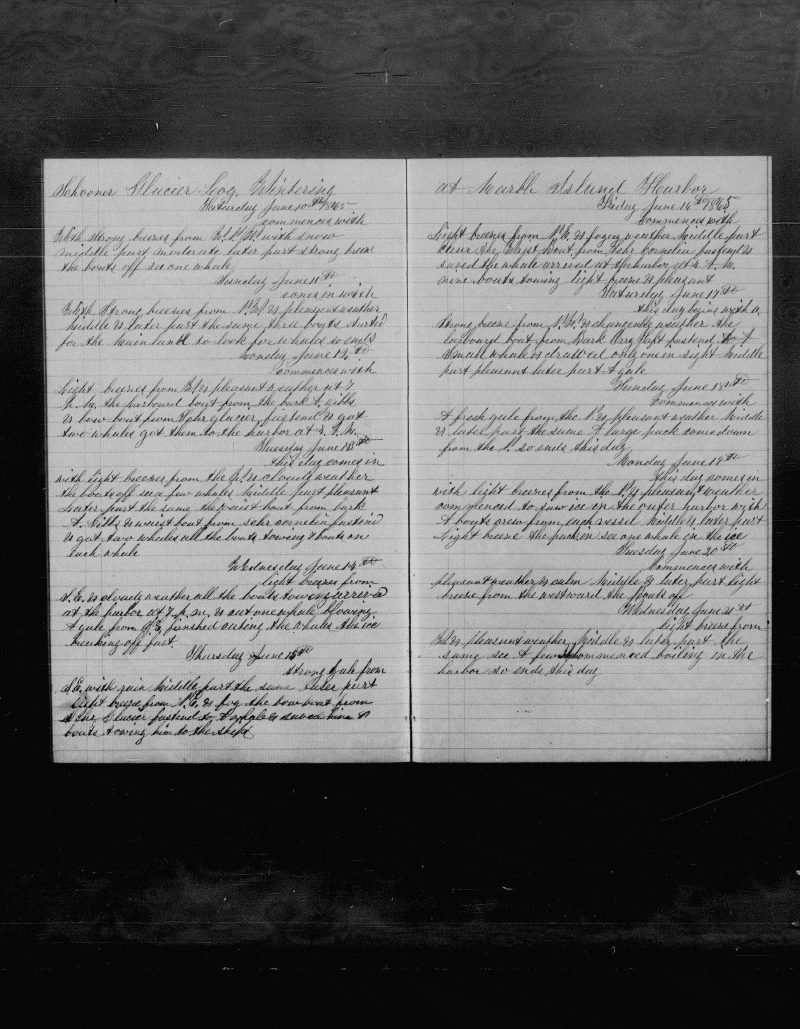 Schooner Glacier Log Wintering
Saturday June 10th 1865
commences with
strong breezes from with snow
middle part moderate later part strong breeze
the bouts off see one whale
Sunday June 11th
comes in with
strong breezes from pleasent weather
middle & later part the same three bouts started
for the main land to look for whales so ends
Monday June 12th
commences with
Light breezes from pleasant weather at 7
the larboard bout from the bark A. Gibbs
& bow bout from Schr glacier fastend & got
two whales got them to the harbor at
Tuesday June 13th
this day comes in
with light breezes from the & cloudy weather
the bouts off see a few whales Middle part pleasant
Later part the same the waist bout from bark
A. Gibbs & waist bout from schr cornelia fastend
& got two whales all the bouts towing bouts on
each whale
Wednesday June 14th
light breezes from
S.E. & cloudy weather all the bouts towing arrived
at the harbor at 7 p.m. & cut one whale blowing
A gale from finished cuting the whales the ice
breaking off fast
Thursday June 15th
strong gale from
S.E. with rain Middle part the same Later part
Light breezes from N.E. & fog the bow bout from
Schr Glacier fastend to & saved him
bouts towing him to the ship
at Marble Island Harbor
Friday June 16th 1865
Commences with
Light breezes from N.E. & fogey weather Middle part
clear the Waist Bout from Schr Cornelia fastend &
saved the whale arrived at the harbor at
nine bouts towing light breeze & pleasant
Saturday June 17th
this day begins with a
strong breeze from & changeable weather the
larboard bout from Bark Orray Taft fastend to A
Small whale & drawed only one in sight Middle
part pleasant later part A gale
Sunday June 18th
Commences with
A fresh gale from the N. & pleasant weather Middle
& later part the same A large pack come down
from the N. so ends this day
Monday June 19th
this day comes in
with light breezes from the N. & pleasant weather
commenced to saw ice in the outer harbor with
A bouts crew from each vessel Middle & later part
Light breeze the pack in see one whale in the ice
Tuesday June 20th
Commences with
pleasant weather & calm Middle & later part light
breeze from the westward the bouts off
Wednesday June 21st
light breeze from
pleasant weather Middle & later part the
same see A few commenced boiling in the
harbor so ends this day